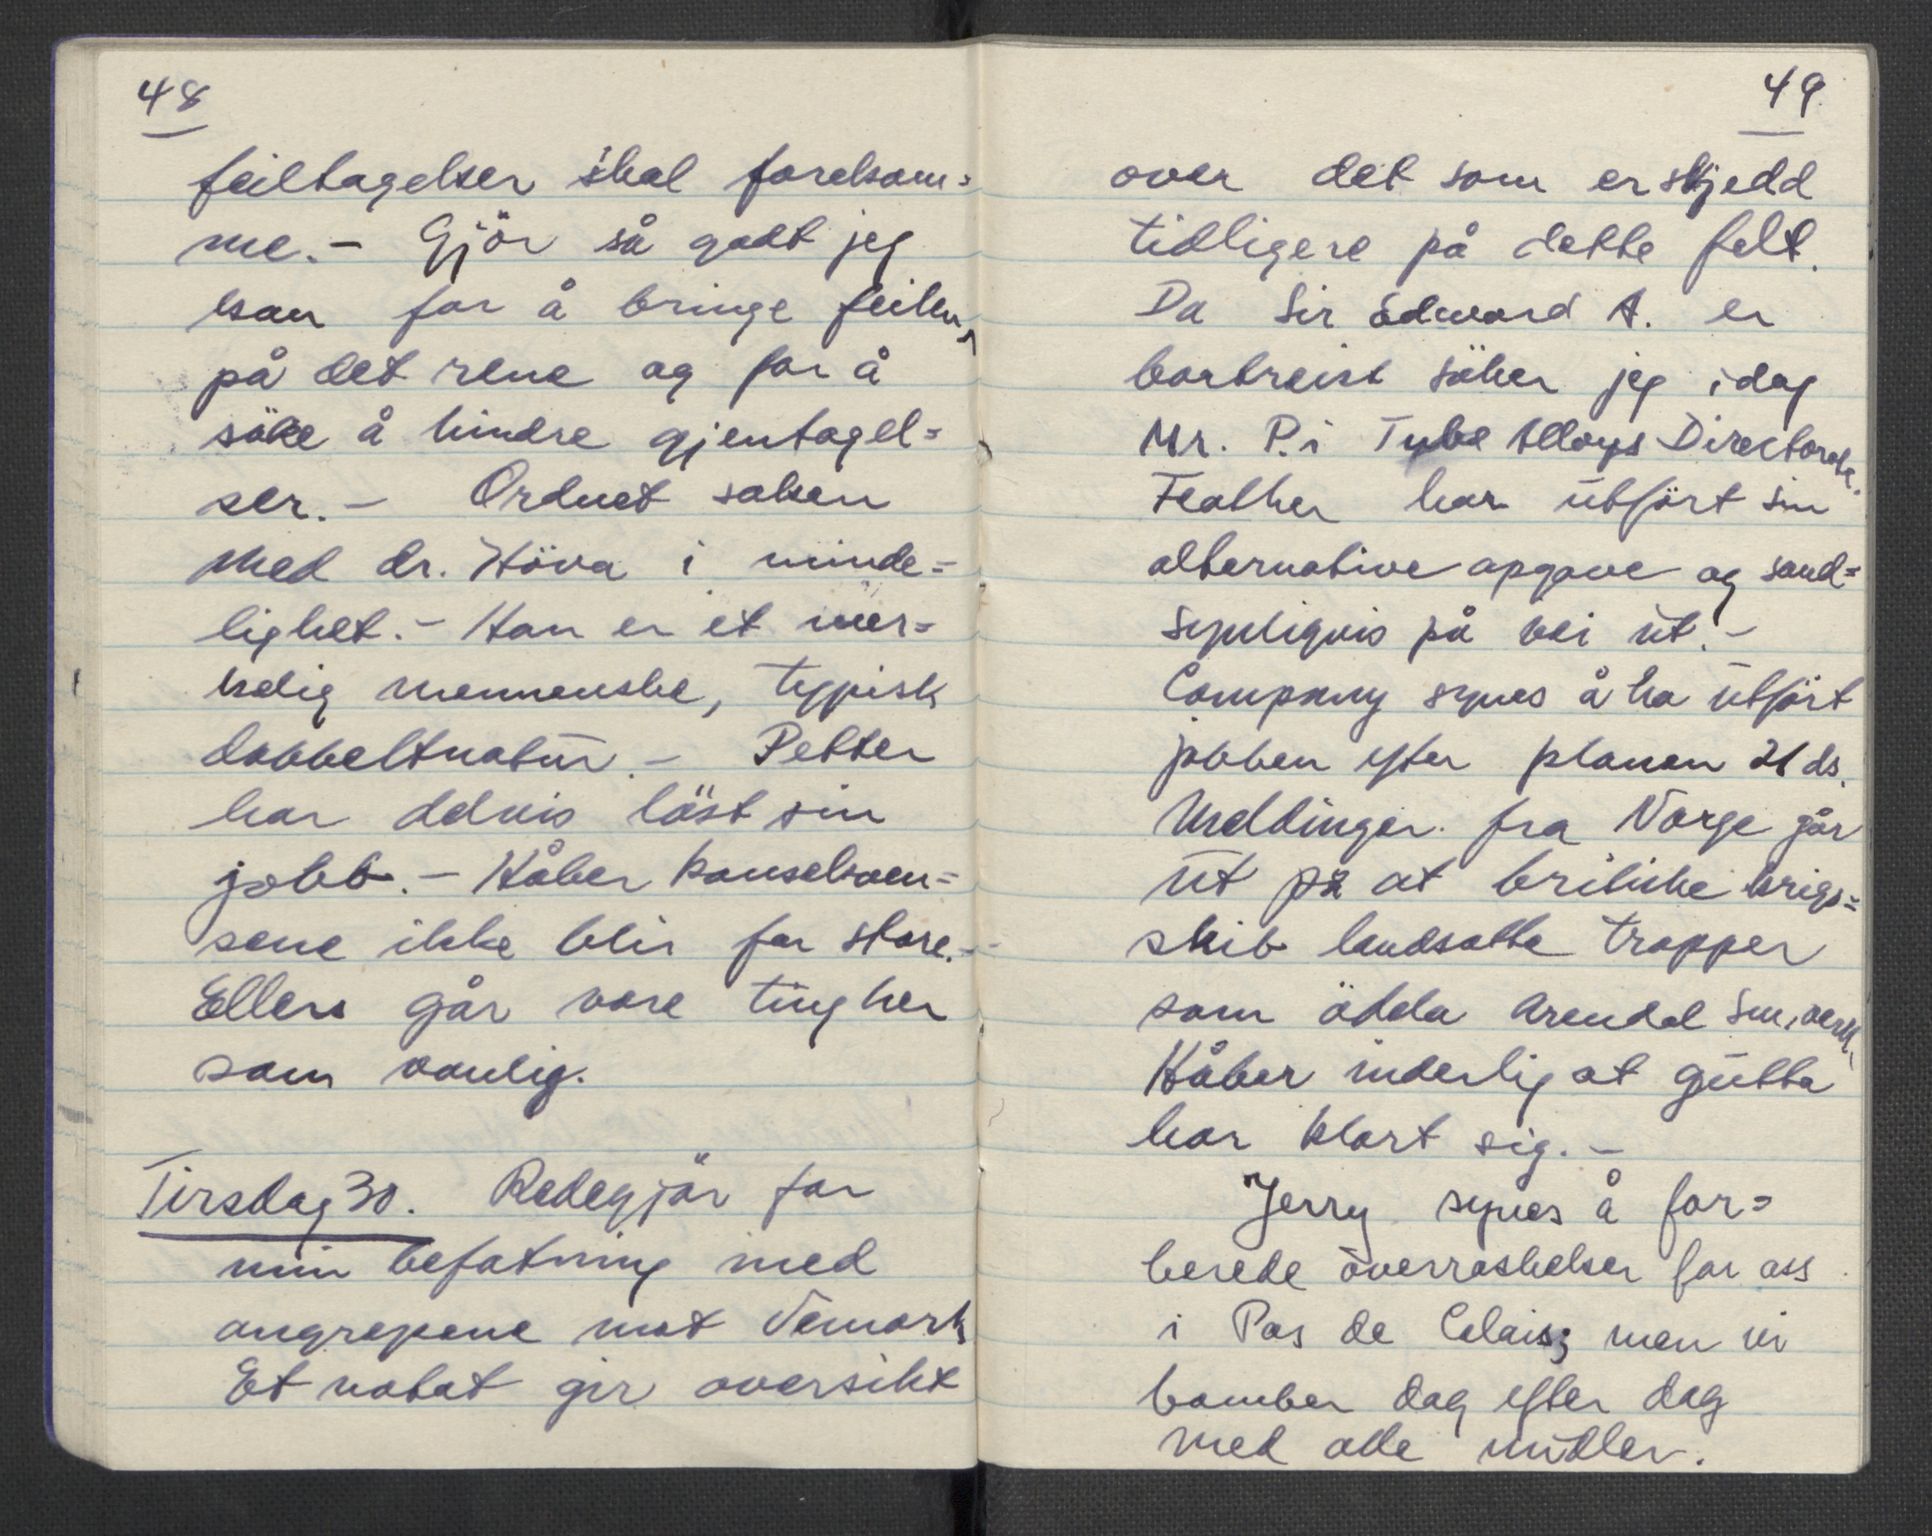 48
feiltagelser skal forekom=
me. - Gjör så godt jeg
kan for å bringe feilen
på det rene og for å
söke å hindre gjentagel=
ser. - Ordnet saken
med dr. Höva i minde=
lighet. - Han er et mer=
kelig menneske, typisk
dobbeltnatur. - Petter
har delvis löst sin
jobb. - Håber konsekven=
sene ikke blir for store. -
Ellers går våre ting her
som vanlig.
Tirsdag 30. Redegjör for
min befatning med
angrepene mot Vemork
Et notat gir oversikt
49
over det som er skjedd
tidligere på dette felt.
Da Sir Edward A. er
bortreist söker jeg idag
Mr. P. i Tube Alloys Directorate.
Feather har utfört sin
alternative opgave og sand=
synligvis på vei ut. -
Company synes å ha utfört
jobben efter planen 21 ds.
Meldinger fra Norge går
ut på at britiske krigs=
skib landsatte tropper
som ödela Arendal Sm.verk.
Håber inderlig at gutta
har klart sig. -
Jerry synes å for=
berede overraskelser for oss
i Pas de Calais; men vi
bomber dag efter dag
med alle midler.